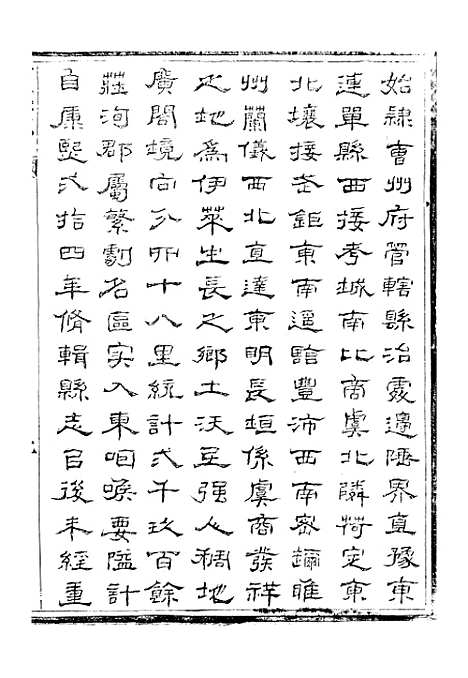 始隸曹州府管轄縣治處邊陲界直豫東
連單縣西接考城南比商虞北隣荷定東
北壤接茌鉅東南遥臨豐沛西南密邇睢
州蘭儀西北直達東明長垣係虞商發祥
之地爲伊萊生長之鄉土沃民强人稠地
廣閤境向分卌十八里統計弍千玖百餘
莊洵郡屬繁劇名區实入東咽喉要隘計
自康熙弍拾四年脩輯縣志㠯後未經重